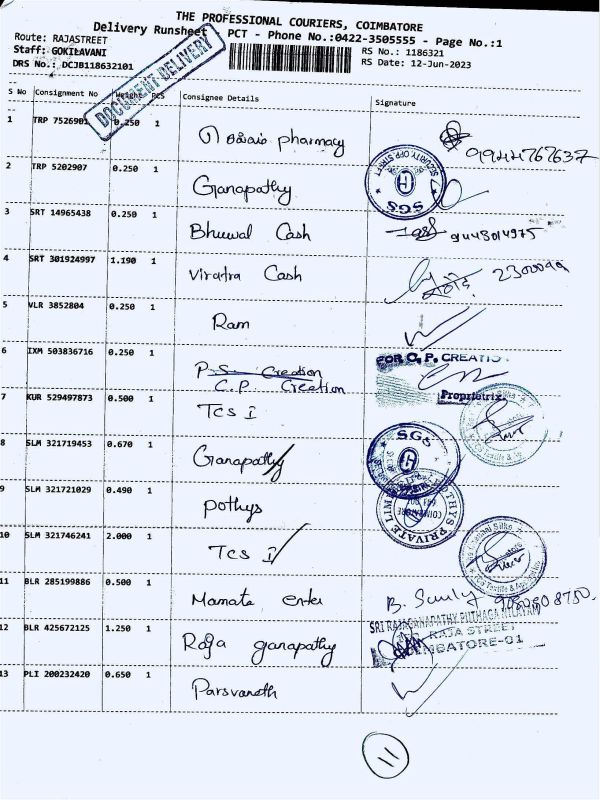 THE PROFESSIONAL COURIERS, COIMBATORE
Delivery Runsheet PCT - Phone No.:0422-3505555 - Page No.:1
Route: RAJASTREET
Staff: GOKILAVANI
RS No.: 1186321
DRS No.: DCJB118632101
RS Date: 12-Jun-2023
DOCUMENT DELIVERY
S No Consignment No Weight PCS Consignee Details Signature
1 TRP 752690 0.250 1 pharmacy 9944767637
2 TRP 5202907 0.250 1 Ganapathy
SGS
3 SRT 14965438 0.250 1 Bhuwal Cash 9443014975
4 SRT 301924997 1.190 1 Viratra Cash
5 VLR 3852804 0.250 1 Ram
6 IXM 503836716 0.250 1 P.S. Creation
C.P. Creation
FOR C. P. CREATIO
Proprietrix
7 KUR 529497873 0.500 1 TCS I
8 SLM 321719453 0.670 1 Ganapathy
SGS
9 SLM 321721029 0.490 1 pothys
POTHYS PRIVATE LIM
10 SLM 321746241 2.000 1 TCS I
11 BLR 285199886 0.500 1 Mamata
12 BLR 425672125 1.250 1 Raja ganapathy
SRI RAJAGANAPATHY PUTHAGA NILAYAM
RAJA STREET
COIMBATORE-01
13 PLI 200232420 0.650 1 Parsvanath
11